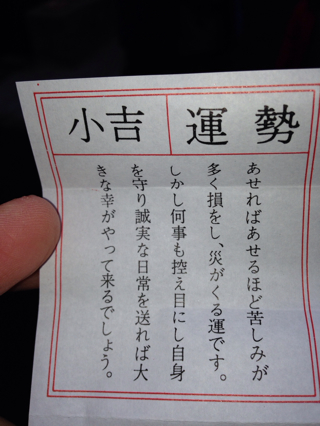 運勢
小吉
あせればあせるほど苦しみが
多く損をし、災がくる運です。
しかし何事も控え目にし自身
を守り誠実な日常を送れば大
きな幸がやって来るでしょう。